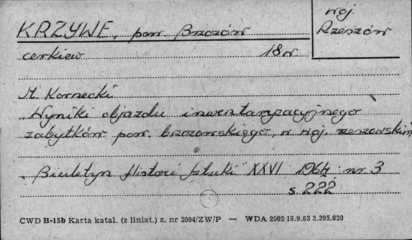 KRZYWE, pow. Brzozów
woj
Rzeszów
cerkiew 18 w.
M. Kornecki
Wyniki objazdu inwentaryzacyjnego
zabytków pow. brzozowskiego, w woj. rzeszowskim
Biuletyn Historii Sztuki XXVI 1964 nr. 3
s. 222
CWD B-15b Karta katal. (z liniat.) z. nr 2094/ZW/P — WDA 2002 16.9.63 3,395.020